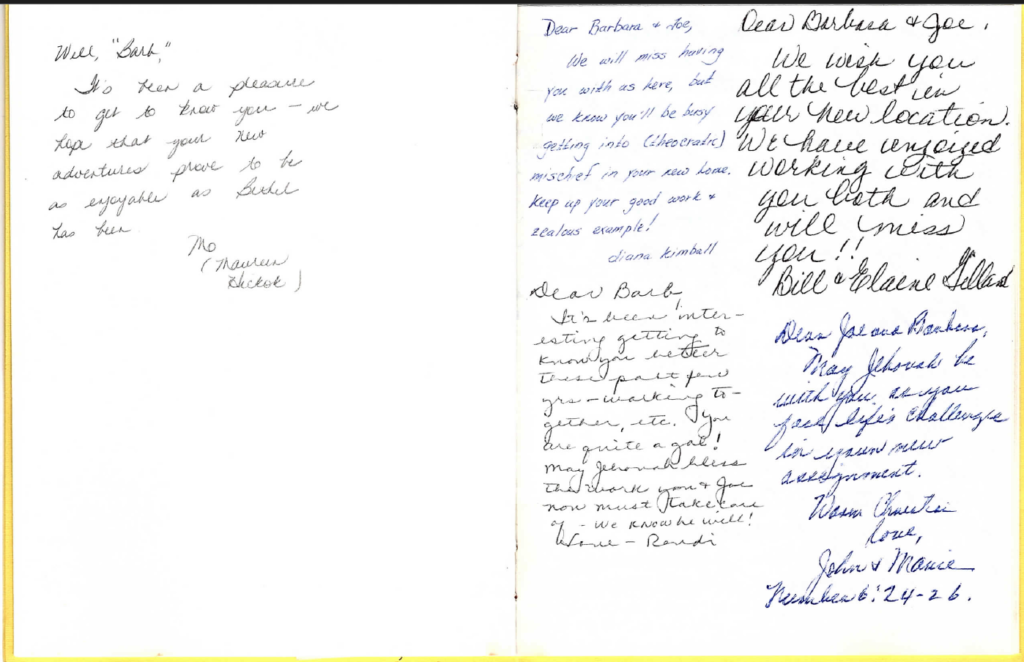 Well, "Barb,"
It's been a pleasure
to get to know you – we
hope that your new
adventures prove to be
as enjoyable as Bethel
has been.
Mo
(Maureen
Hickok)
Dear Barbara & Joe,
We will miss having
you with us here, but
we know you'll be busy
getting into (theocratic)
mischief in your new home.
Keep up your good work &
zealous example!
diana kimball
Dear Barb,
It's been inter-
esting getting to
know you better
these past few
yrs – working to-
gether, etc. You
are quite a gal!
May Jehovah bless
the work you & Joe
now must take care
of – We know he will!
Love – Randi
Dear Barbara & Joe.
We wish you
all the best in
your new location.
We have enjoyed
working with
you both and
will miss
you!!
Bill & Elaine
Dear Joe and Barbara,
May Jehovah be
with you as you
face life's challenges
in your new
assignment.
Warm Christian
love,
John & Marie
Numbers 6:24-26.